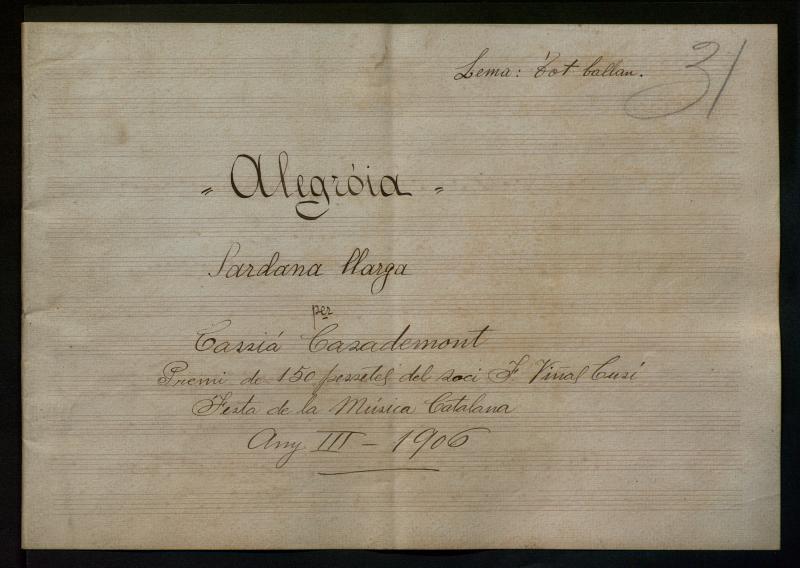 Lema: Tot ballan.
31
" Alegróia "
Sardana llarga
per
Cassiá Casademont
Premi de 150 pessetes del soci F Viñas Cusí
Festa de la Música Catalana
Any III – 1906